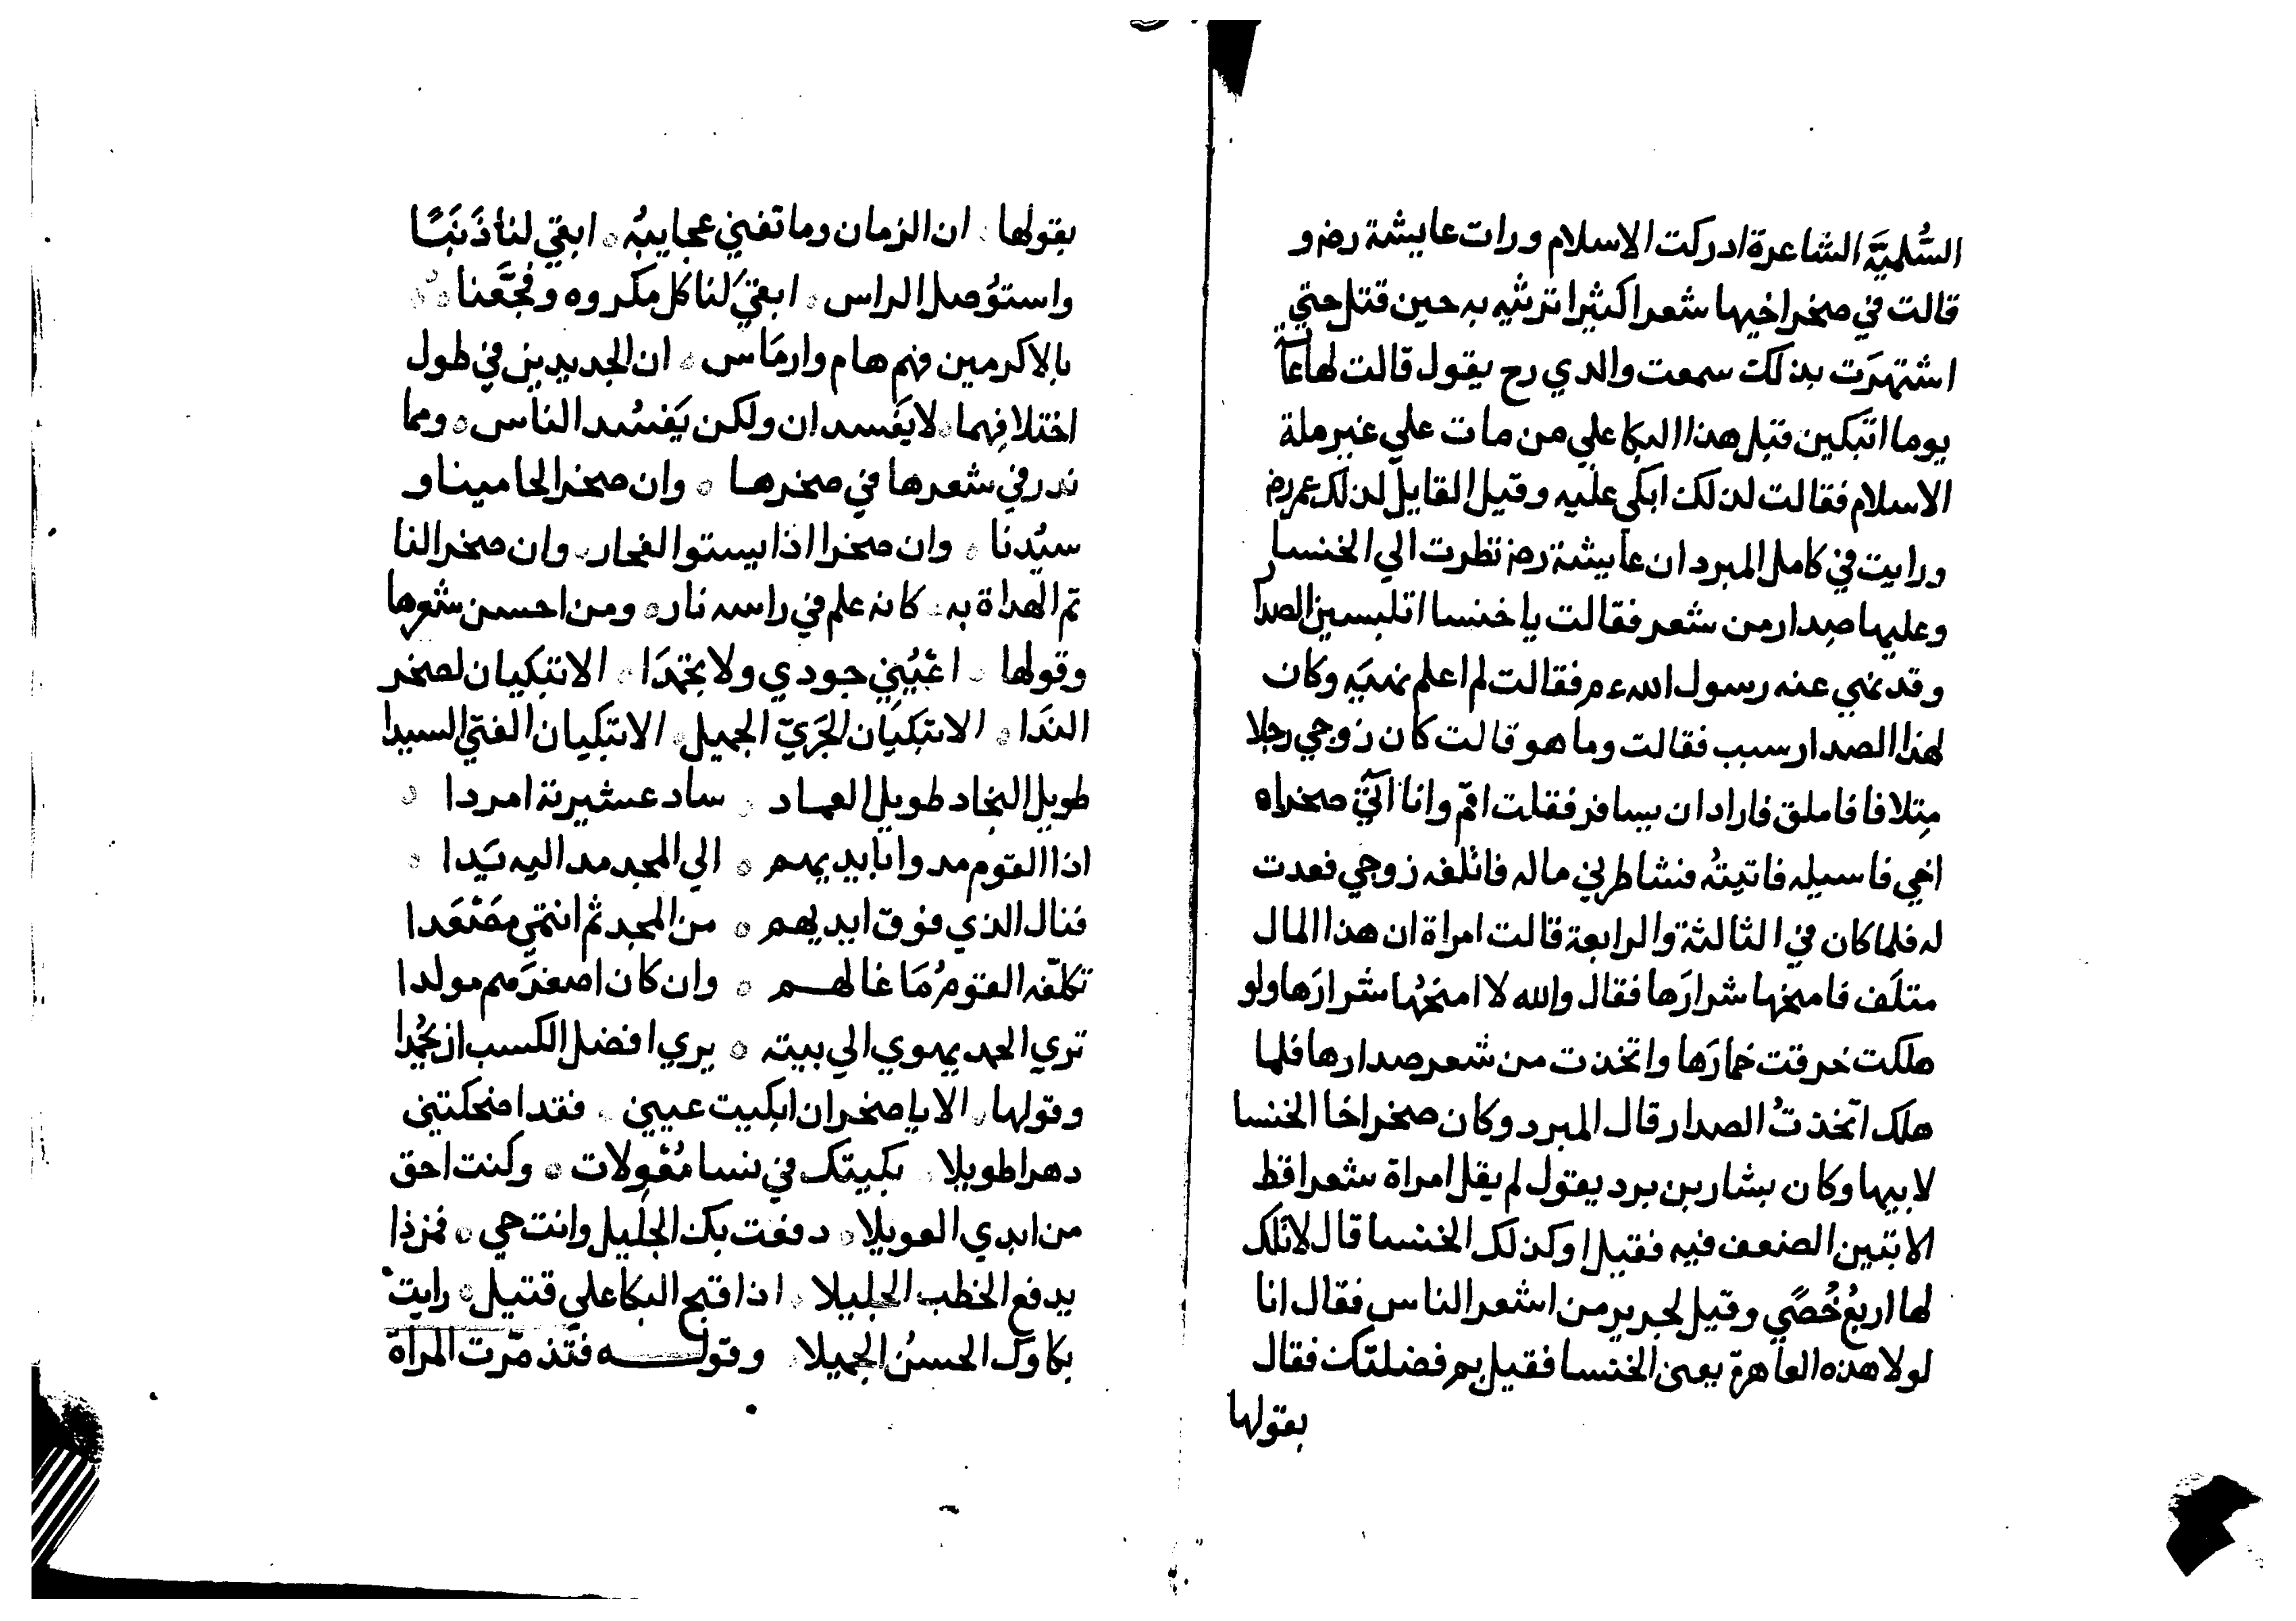 السُّلميَّة الشاعرة ادركت الاسلام ورات عايشة رضر و
قالت في صخر اخيها شعرا كثيرا ترثيه به حين قتل حتي
اشتهرَت بذلك سمعت والدي رح يقول قالت لها
يوما اتبكين قبل هذا البكا علي من مات علي غير ملة
الاسلام فقالت لذلك ابكي عليه وقيل القايل لذلك عمر رضر
ورايت في كامل المبرد ان عايشة رضر نظرت الي الخنسا
وعليها صدار من شعر فقالت يا خنسا اتلبسين الصدار
وقد نهي عنه رسول الله عم فقالت لم اعلم نهيَه وكان
لهذا الصدار سبب فقالت وما هو قالت كان زوجي رجلا
متلافا فاملق فاراد ان يسافر فقلت اقم وانا آتي صخراه
اخي فاسيله فاتيتُه فشاطرني ماله فاتلفه زوجي فعدت
له فلما كان في الثالثة والرابعة قالت امراة ان هذا المال
متلَف فامنحها شرارَها فقال والله لا امنحُها شرارَها ولو
هلكت خرقت خمارَها واتخذت من شعر صدارها فلما
هلك اتخذتُ الصدار قال المبرد وكان صخر اخا الخنسا
لابيها وكان بشار بن برد يقول لم يقل امراة شعرا قط
الا تبين الضعف فيه فقيل اوكذلك الخنسا قال لا تلك
لها اربعُ خُصًي وقيل لجرير من اشعر الناس فقال انا
لولا هذه العاهرة يعني الخنسا فقيل بم فضلتك فقال
بقولها
بقولها ان الزمان وما تفني عجايبُه ابقي لنا ذَنَبًا
واستوُصل الراس ابقيَ لنا كل مكروه وفجَّعنا
بالاكرمين فهم هام وارمَاس ان الجديدين في طول
اختلافِهما لا يَفسدان ولكن يَفسُد الناس ومما
ندر في شعرها في صخرها وان صخرا لحامينا و
سيُدنا وان صخرا اذا يستوا لنحار وان صخرا لتا
تم الهداة به كانه علم في راسه نار ومن احسن شعرها
وقولها اعَينيَ جودي ولا تجمُدَا الا تبكيان لصخر
الندَا الا تبكيَان الجَريّ الجميل الا تبكيان الفتي السيدا
طويل النجاد طويل العماد ساد عشيرتة امردا
اذا القوم مدوا بايديهم الي المجد مد اليه يَدا
فنال الذي فوق ايديهم من المجد ثم انتمي مصْعَدا
تكلّفه القومُ مَا غالهم وان كان اصغرَهم مولدا
تري الحمد يهوي الي بيته يري افضل الكسب ان يُحمدا
وقولها الا يا صخر ان ابكيت عيني فقد اضحكتني
دهرا طويلا بكيتك في نسا مُعْوِلات وكنت احق
من ابدي العويلا دفعت بك الجليل وانت حي فمن ذا
يدفع الخطب الجليلا اذا قبح البكا علي قتيل رايت
بكاوك الحسنُ الجميلا وقوله فتذمّرت المراة